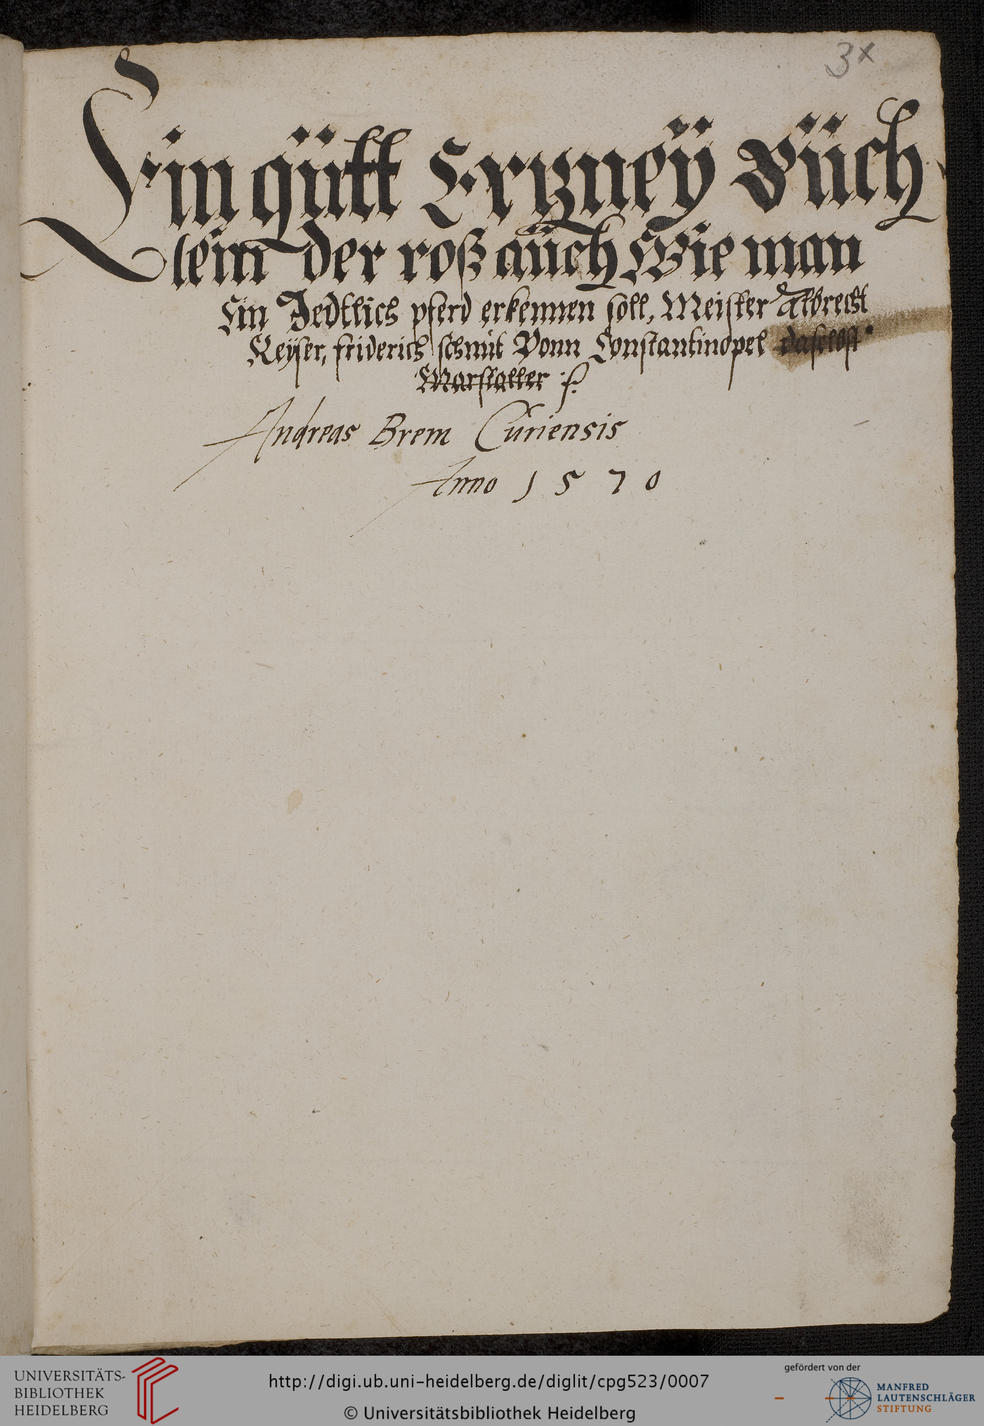 3x
Ein gütt Ertzneÿ Büch
lein der roß aüch Wie man
Ein Jedtlich pferd erkennen soll, Meister Albrecht
Keyser, friderich schmit Vonn Constantinopel daselbst
Marstaller
Andreas Brem Curiensis
Anno 1570
UNIVERSITÄTS-
BIBLIOTHEK
HEIDELBERG
http://digi.ub.uni-heidelberg.de/diglit/cpg523/0007
© Universitätsbibliothek Heidelberg
gefördert von der
MANFRED
LAUTENSCHLÄGER
STIFTUNG